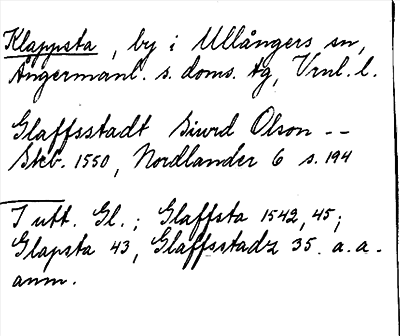 Klappsta, by i Ullångers sn,
Ångermanl. s. doms. tg, Vrnl. l.
Glaffsstadt Siurd Olson --
Skb. 1550, Nordlander 6 s. 194
I utt. Gl.; Glaffsta 1542, 45;
Glapsta 43, Glaffsstadz 35. a. a.
anm.